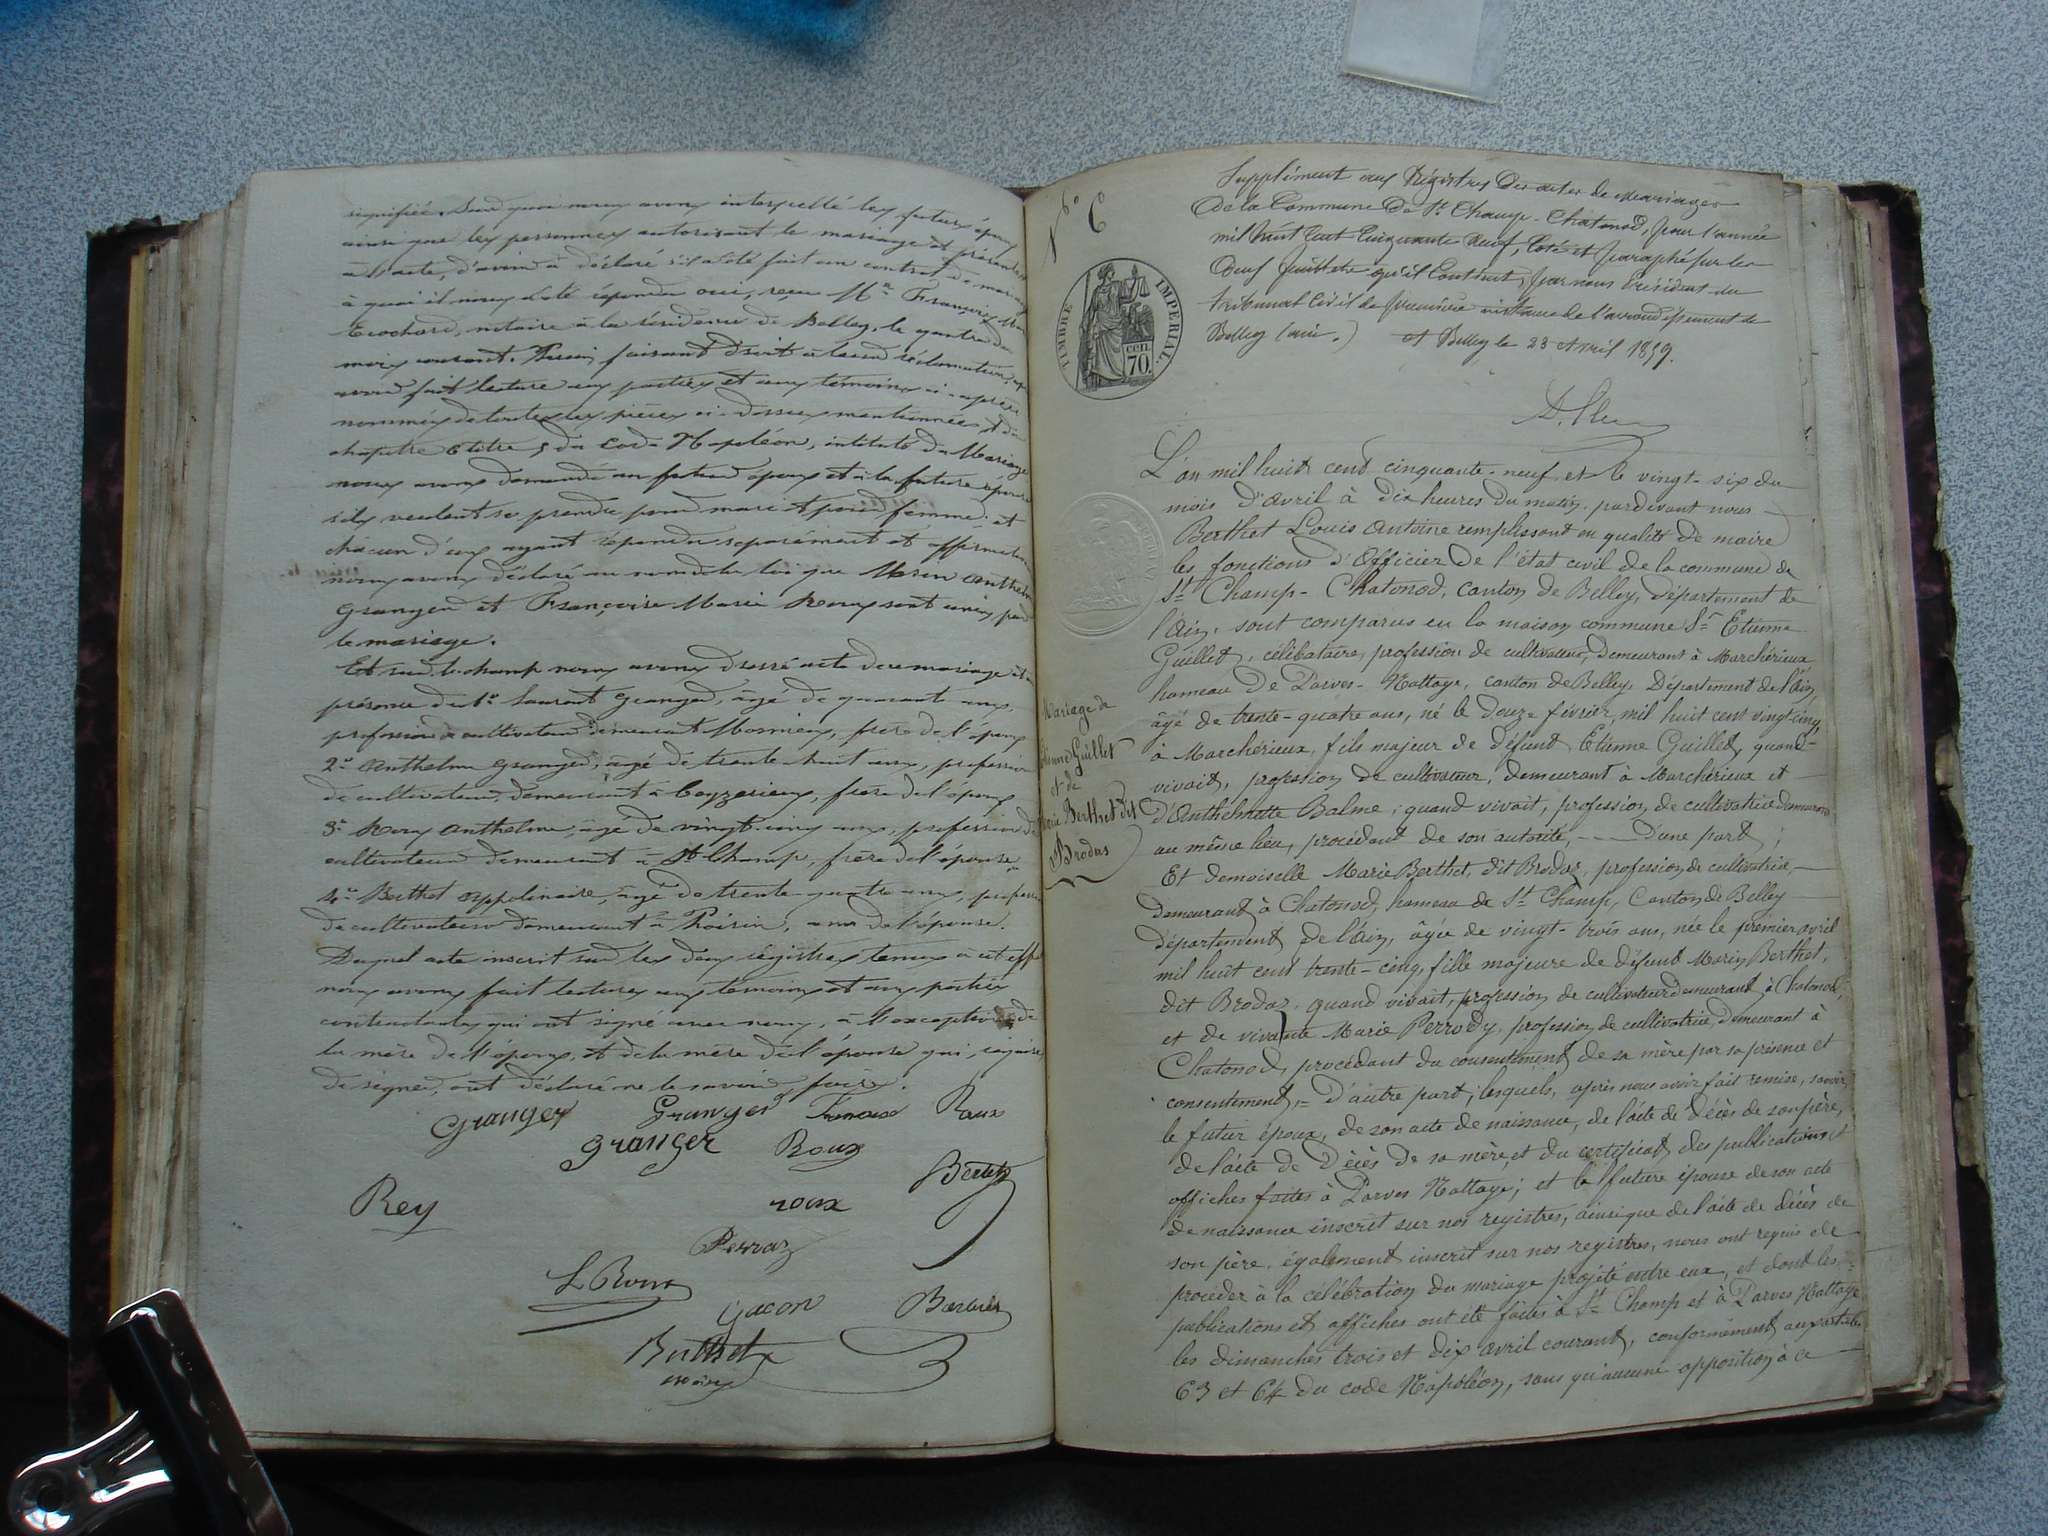 signifiée. Sur quoi nous avons interpellé les futurs époux
ainsi que les personnes autorisant le mariage et présentes
à l'acte, d'avoir à déclaré s'il a été fait un contrat de mariage
à quoi il nous a été répondu oui, reçu Me François
notaire à la résidence de Belley, le quatre du
mois courant. Aussi, faisant droit à leur réclamation, après
avoir fait lecture aux parties et aux témoins ci-après
nommés de toutes les pièces ci-dessus mentionnées et du
chapitre 6 titre 5 du Code Napoléon, intitulé du Mariage
nous avons demandé au futur époux et à la future épouse
s'ils veulent se prendre pour mari et pour femme, et
chacun d'eux ayant répondu séparément et affirmativement
nous avons déclaré au nom de la loi que Marin Anthelme
Granger et Françoise Marie Roux sont unis par
le mariage.
Et sur le champ nous avons dressé acte de ce mariage en
présence de 1° Laurent Granger, âgé de quarant ans,
profession de cultivateur demeurant frère de l'époux
2° Anthelme Granger, âgé de trente huit ans, profession
de cultivateur, demeurant à Ceyzerieux, frère de l'époux
3° Roux Anthelme, âgé de vingt-cinq ans, profession de
cultivateur demeurant à St Champ, frère de l'épouse
4° Berthet Appolinaire, âgé de trente quatre ans, profession
de cultivateur demeurant à Thoirin, ami de l'épouse.
Duquel acte inscrit sur les deux régistres tenus à cet effet
nous avons fait lectures aux témoins et aux parties
contractantes qui ont signé avec nous, à l'exception de
la mère de l'époux, et de la mère de l'épouse qui, requise
de signer, ont déclaré ne le savoir faire.
Granger Granger Francoise Roux
Granger Roux
Rey roux Bertet
Perraz
L Roux
Gacon
Berthet
maire
6°
Supplément aux Régistres des actes de Mariages
de la Commune de St Champ-Chatonod, pour l'année
mil huit cent cinquante neuf, coté et paraphé sur les
deux feuillets qu'il contient, par nous Président du
tribunal civil de première instance de l'arrondissement de
Belley (ain.) à Belley le 23 Avril 1859.
TIMBRE IMPERIAL
cen
70.
L'an mil huit cent cinquante-neuf et le vingt-six du
mois d'avril à dix heures du matin, pardevant nous
Berthet Louis Antoine remplissant en qualité de maire
les fonctions d'Officier de l'état civil de la commune de
St Champ-Chatonod, canton de Belley, département de
l'ain, sont comparus en la maison commune Sr Etienne
Guillet, célibataire, profession de cultivateur, demeurant à Marchérieux
hameau de Parves-Nattage, canton de Belley, Département de l'ain
âgé de trente-quatre ans, né le douze février mil huit cent vingt-cinq,
à Marchérieux, fils majeur de défunt Etienne Guillet, quand
vivait, profession de cultivateur, demeurant à Marchérieux et
d'Anthelmette Balme, quand vivait, profession de cultivatrice demeurant
au même lieu, procédant de son autorité, — d'une part;
Mariage de
Etienne Guillet
et de
Marie Berthet dit
Brodas
Et demoiselle Marie Berthet, dit Brodaz, profession de cultivatrice,
demeurant à Chatonod, hameau de St Champ, Canton de Belley
département de l'ain, âgée de vingt-trois ans, née le premier avril
mil huit cent trente-cinq, fille majeure de défunt Marin Berthet,
dit Brodaz, quand vivait, profession de cultivateur demeurant à Chatonod,
et de vivante Marie Perrody, profession de cultivatrice, demeurant à
Chatonod, procédant du consentement de sa mère par sa présence et
consentement, - d'autre part; lesquels, après nous avoir fait remise, savoir,
le futur époux, de son acte de naissance, de l'acte de décès de son père,
de l'acte de décès de sa mère, et du certificat des publications et
affiches faites à Parves Nattage; et la future épouse de son acte
de naissance inscrit sur nos registres, ainsi que de l'acte de décès de
son père, également inscrit sur nos registres, nous ont requis de
procéder à la célébration du mariage projeté entre eux, et dont les
publications et affiches ont été faites à St Champ et à Parves Nattage
les dimanches trois et dix avril courant, conformément aux articles
63 et 64 du code Napoléon, sans qu'aucune opposition à ce